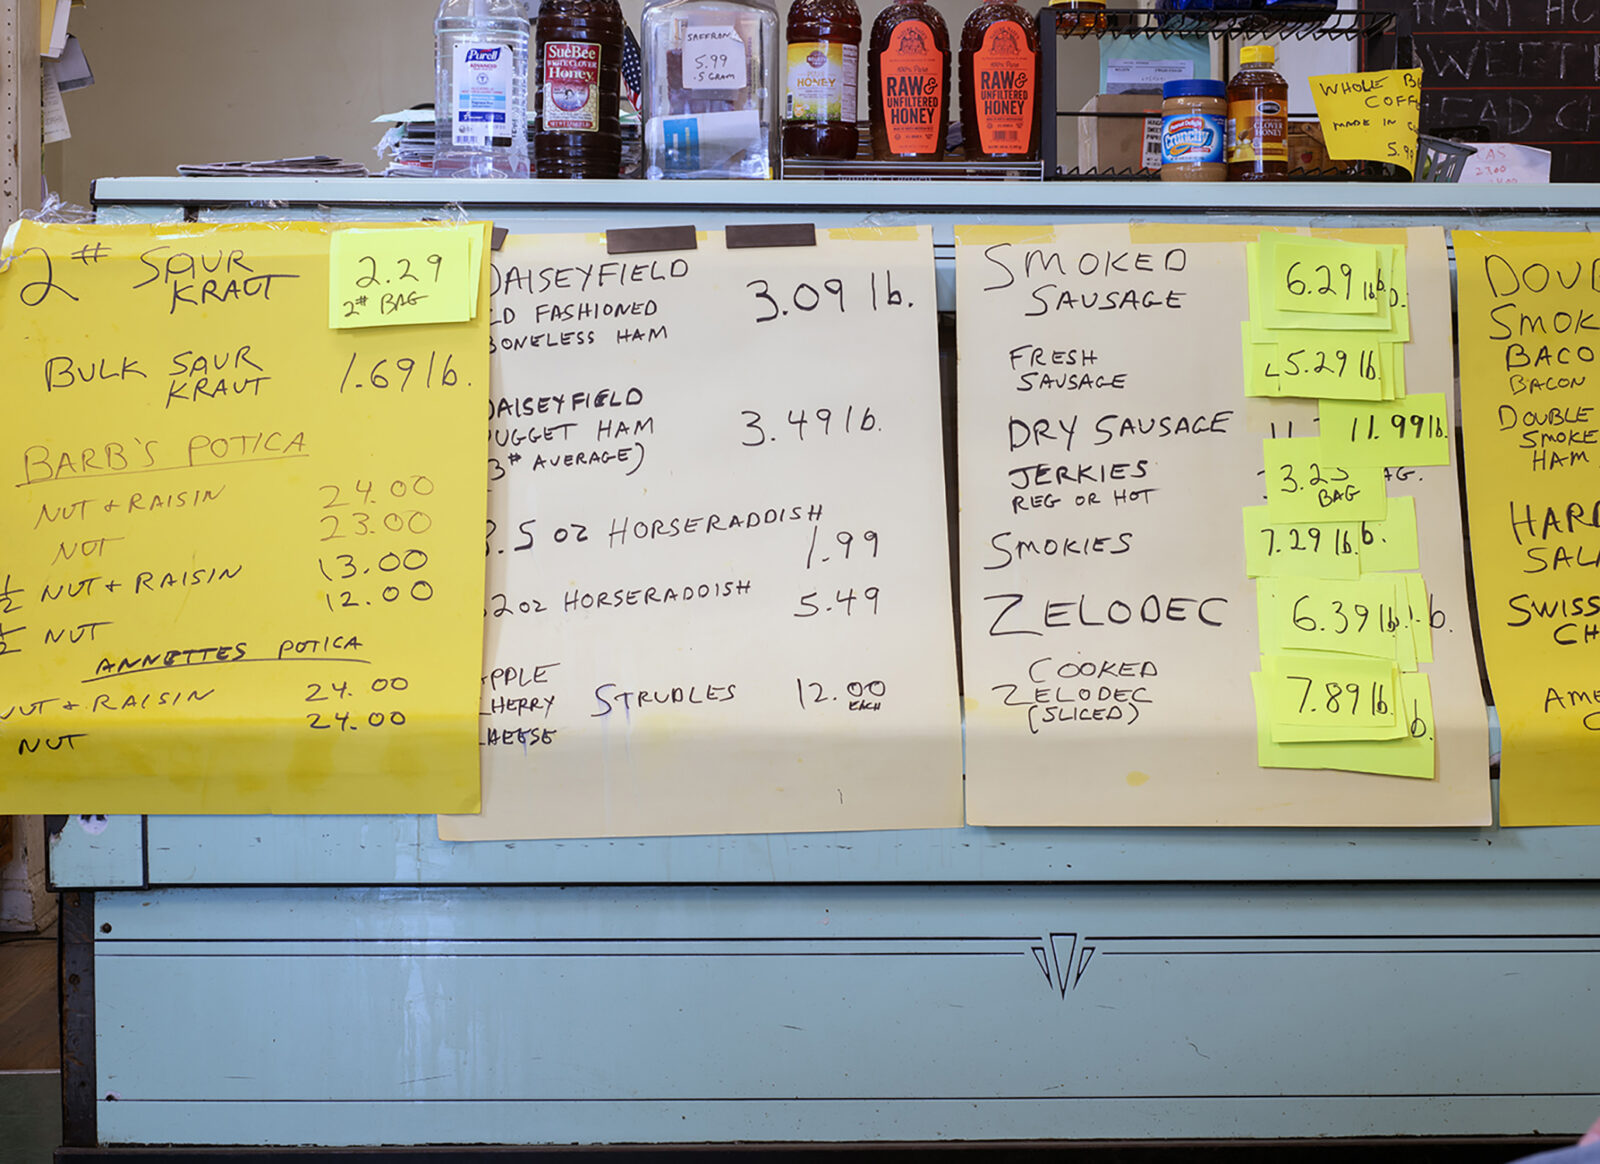 Purell
ADVANCED
SueBee
WHITE CLOVER
Honey
SAFFRON
5.99
.5 GRAM
HONEY
100% Pure
RAW &
UNFILTERED
HONEY
100% Pure
RAW &
UNFILTERED
HONEY
Crunchy
CLOVER
HONEY
WHOLE BE
COFF
MADE IN
5.99
HAM HO
SWEET
EAD CH
23.00
2# SAUR
KRAUT
2.29
2# BAG
BULK SAUR
KRAUT
1.69 lb.
BARB'S POTICA
NUT + RAISIN 24.00
NUT 23.00
1/2 NUT + RAISIN 13.00
1/2 NUT 12.00
ANNETTES POTICA
NUT + RAISIN 24.00
NUT 24.00
DAISEYFIELD
LD FASHIONED
BONELESS HAM
3.09 lb.
DAISEYFIELD
NUGGET HAM
(3# AVERAGE)
3.49 lb.
.5 oz HORSERADDISH
1.99
32 oz HORSERADDISH 5.49
APPLE
CHERRY STRUDLES 12.00 EACH
CHEESE
SMOKED
SAUSAGE
6.29 lb.
FRESH
SAUSAGE
5.29 lb.
DRY SAUSAGE 11.99 lb.
JERKIES
REG OR HOT
3.25
BAG
SMOKIES 7.29 lb.
ZELODEC 6.39 lb.
COOKED
ZELODEC
(SLICED)
7.89 lb.
DOUB
SMOK
BACO
BACON
DOUBLE
SMOKE
HAM
HARD
SALA
SWISS
CH
AME
C